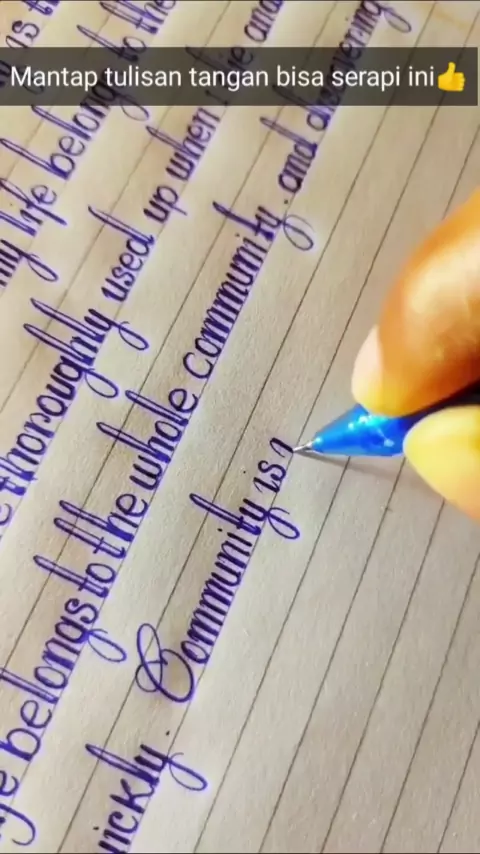 Mantap tulisan tangan bisa serapi ini👍
my life belongs to the
thoroughly used up when die and
belongs to the whole community. and discovering
uickly. Community is